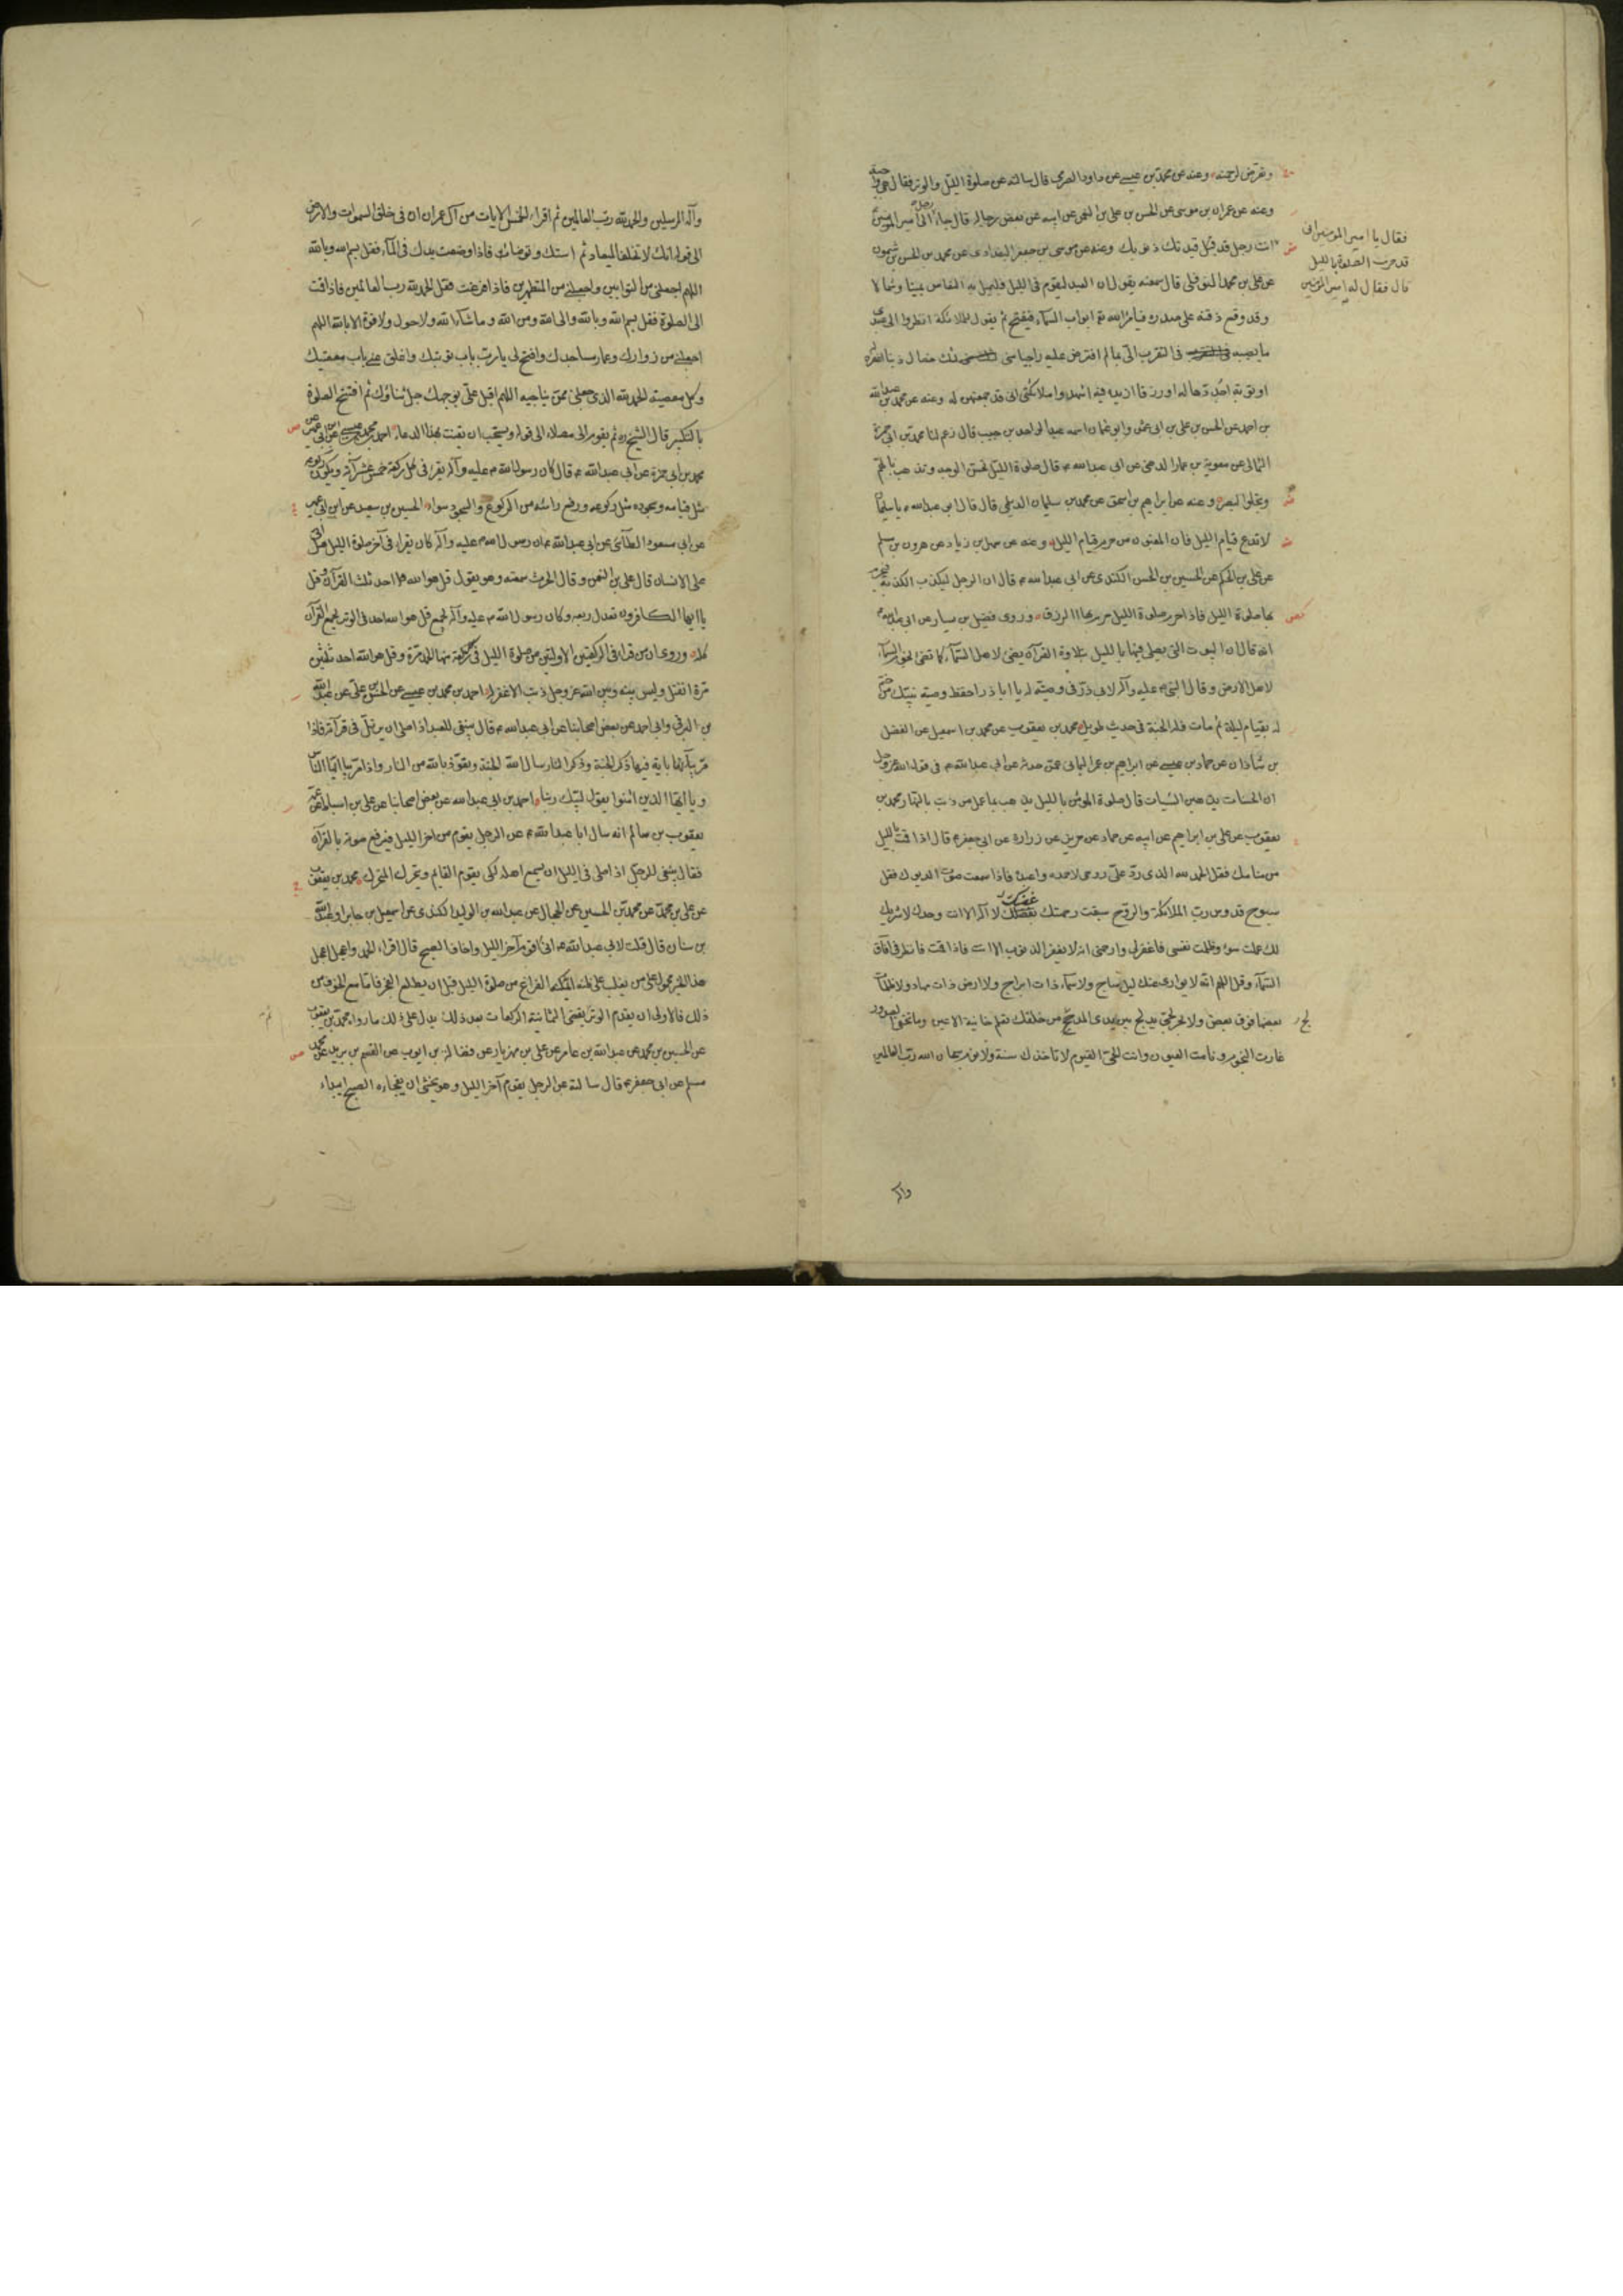 وتعرض لرحمته وعنه عن محمد بن عيسى عن داود الصرمي قال سالته عن صلوة الليل والوتر فقال هي واجبة
وعنه عن عمران بن موسى عن الحسن بن علي بن النعمن عن ابيه عن بعض رجاله قال جاء رجل الى امير المؤمنين
فقال يا امير المؤمنين انى
قد حرمت الصلوة بالليل
قال فقال له امير المؤمنين
انت رجل قد قيدتك ذنوبك وعنه عن موسى بن جعفر البغدادى عن محمد بن الحسن بن شمون
عن علي بن محمد النوفلى قال سمعته يقول ان العبد ليقوم فى الليل فيميل به النعاس يمينا وشمالا
وقد وقع ذقنه على صدره فيامر الله تع ابواب السماء فيفتح ثم يقول للملائكة انظروا الى عبدى
ما يصيبه فى التقرب الى بما لم افترض عليه راجيا منى ثلث خصال ذنبا اغفره
او توبة اجددها له او رزقا ازيده فيه اشهدوا ملائكتى انى قد جمعتهن له وعنه عن محمد بن عبد الله
بن احمد عن الحسن بن علي بن ابى عثمن وابو عثمان اسمه عبد الواحد بن حبيب قال زعم لنا محمد بن ابى حمزة
الثمالى عن معوية بن عمار الدهنى عن ابى عبد الله ع قال صلوة الليل تحسن الوجه وتذهب بالهم
وتجلوا البصر وعنه عن ابراهيم بن اسحق عن محمد بن سليمان الديلمى قال قال ابو عبد الله ع يا سليمان
لا تدع قيام الليل فان المغبون من حرم قيام الليل وعنه عن سهل بن زياد عن هرون بن مسلم
عن علي بن الحكم عن الحسين بن الحسن الكندى عن ابى عبد الله ع قال ان الرجل ليكذب الكذبة فيحرم
بها صلوة الليل فاذا حرم صلوة الليل حرم بها الرزق وروى فضيل بن يسار عن ابى عبد الله ع
انه قال ان البيوت التى يصلى فيها بالليل بتلاوة القرآن يضئ لاهل السماء كما تضئ نجوم السماء
لاهل الارض وقال النبى ص عليه وآله لابى ذر فى وصيته له يا ابا ذر احفظ وصية نبيك من ختم
له بقيام ليلة ثم مات فله الجنة فى حديث طويل محمد بن يعقوب عن محمد بن اسمعيل عن الفضل
بن شاذان عن حماد بن عيسى عن ابراهيم بن عمر اليمانى عمن حدثه عن ابى عبد الله ع فى قول الله عز وجل
ان الحسنات يذهبن السيئات قال صلوة المؤمن بالليل يذهب بما عمل من ذنب بالنهار محمد بن
يعقوب عن علي بن ابراهيم عن ابيه عن حماد عن حريز عن زرارة عن ابى جعفر ع قال اذا قمت بالليل
من منامك فقل الحمد لله الذى رد علي روحى لاحمده واعبده فاذا سمعت صوت الديوك فقل
سبوح قدوس رب الملائكة والروح سبقت رحمتك غضبك لا آله الا انت وحدك لا شريك
لك عملت سوء وظلمت نفسى فاغفر لى وارحمنى انه لا يغفر الذنوب الا انت فاذا قمت فانظر فى آفاق
السماء وقل اللهم انه لا يوارى عنك ليل ساج ولا سماء ذات ابراج ولا ارض ذات مهاد ولا ظلمات
بعضها فوق بعض ولا بحر لجى يدلج بين يدى المدلج من خلقك تعلم خائنة الاعين وما تخفى الصدور
غارت النجوم ونامت العيون وانت الحى القيوم لا تاخذك سنة ولا نوم سبحان الله رب العالمين
واله
وآله المرسلين والحمد لله رب العالمين ثم اقراء الخمس الايات من آل عمران ان فى خلق السموات والارض
الى قوله انك لا تخلف الميعاد ثم استك وتوضا فاذا وضعت يدك فى المآء فقل بسم الله وبالله
اللهم اجعلنى من التوابين واجعلنى من المتطهرين فاذا فرغت فقل الحمد لله رب العالمين فاذا قمت
الى الصلوة فقل بسم الله وبالله والى الله ومن الله وما شاء الله ولا حول ولا قوة الا بالله اللهم
اجعلنى من زوارك وعمار مساجدك وافتح لى يا رب باب توبتك واغلق عنى باب معصيتك
وكل معصية الحمد لله الذى جعلنى ممن يناجيه اللهم اقبل علي بوجهك جل ثناؤك ثم افتتح الصلوة
بالتكبير قال الشيخ ره ثم يقوم الى مصلاه الى قوله ويستحب ان يقنت بهذا الدعاء احمد بن محمد بن عيسى عن ابن ابى عمير عن
محمد بن ابى حمزة عن ابى عبد الله ع قال كان رسول الله ص عليه وآله يقرا فى كل ركعة خمس عشر آية ويكون ركوعه
مثل قيامه وسجوده مثل ركوعه ورفع رأسه من الركوع والسجود سواء الحسين بن سعيد عن ابن ابى عمير
عن ابى مسعود الطآئى عن ابى عبد الله ع ان رسول الله ص عليه وآله كان يقراء فى آخر صلوة الليل هل اتى
على الانسان قال علي بن النعمن وقال الحرث سمعته وهو يقول قل هو الله احد ثلث القرآن وقل
يا ايها الكافرون تعدل ربعه وكان رسول الله ص عليه وآله يجمع قل هو الله احد فى الوتر لجمع القرآن
كله وروى ان من قرا فى الركعتين الاولتين من صلوة الليل فى كل ركعة منهما الحمد مرة وقل هو الله احد ثلثين
مرة انفتل وليس بينه وبين الله عز وجل ذنب الا غفر له احمد بن محمد بن عيسى عن الحسن بن علي عن عبد الله
بن البرقى وابى احمد عن بعض اصحابنا عن ابى عبد الله ع قال ينبغى للعبد اذا صلى ان يرتل فى قرآته فاذا
مر بآية فيها ذكر الجنة وذكر النار سال الله الجنة وتعوذ بالله من النار واذا مر بيا ايها الناس
ويا ايها الذين امنوا يقول لبيك ربنا احمد بن ابى عبد الله عن بعض اصحابنا عن علي بن اسباط عن عمه
يعقوب بن سالم انه سال ابا عبد الله ع عن الرجل يقوم من اخر الليل فيرفع صوته بالقرآن
فقال ينبغى للرجل اذا صلى فى الليل ان يسمع اهله لكى يقوم القايم ويتحرك المتحرك محمد بن يعقوب
عن علي بن محمد عن محمد بن الحسين عن الحجال عن عبد الله بن الوليد الكندى عن اسمعيل بن جابر او عبد الله
بن سنان قال قلت لابى عبد الله ع انى اقوم آخر الليل واخاف الصبح قال اقراء الحمد واعجل اعجل
هذا الخبر محمول على من يغلب على ظنه انه يمكنه الفراغ من صلوة الليل قبل ان يطلع الفجر فاما مع الخوف من
ذلك فالاولى ان يقدم الوتر يقضى الثمانية الركعات بعد ذلك يدل على ذلك ما رواه محمد بن يعقوب
عن الحسين بن محمد عن عبد الله بن عامر عن علي بن مهزيار عن فضالة بن ايوب عن القسم بن بريد عن محمد
مسلم عن ابى جعفر ع قال سالته عن الرجل يقوم آخر الليل وهو يخشى ان يفجاءه الصبح ايبداء